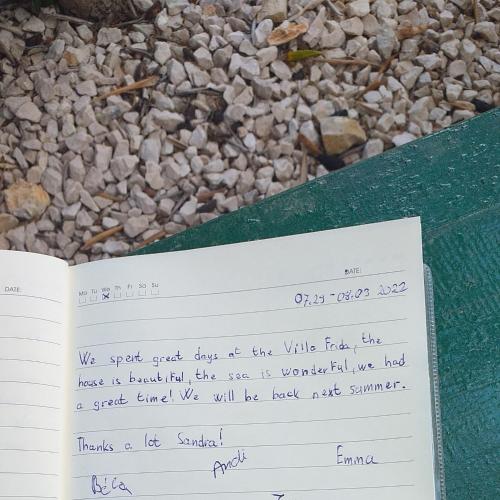 DATE:
Mo Tu We Th Fr Sa Su
DATE:
07.29 - 08.03 2022
We spent great days at the Villa Frida, the
house is beautiful, the sea is wonderful, we had
a great time! We will be back next summer.
Thanks a lot Sandra!
Andi
Emma
Béla